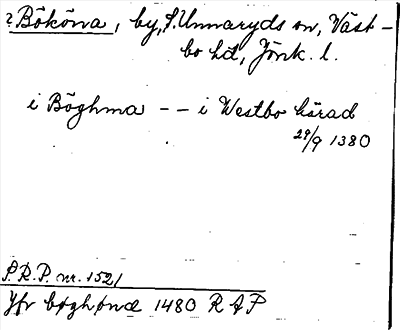 ? Bököna, by, S. Unnaryds sn, Väst-
bo hd, Jönk. l.
i Böghma -- i Westbo härad
29/9 1380
S.R.P. nr. 1521
Jfr bøghønæ 1480 R A P